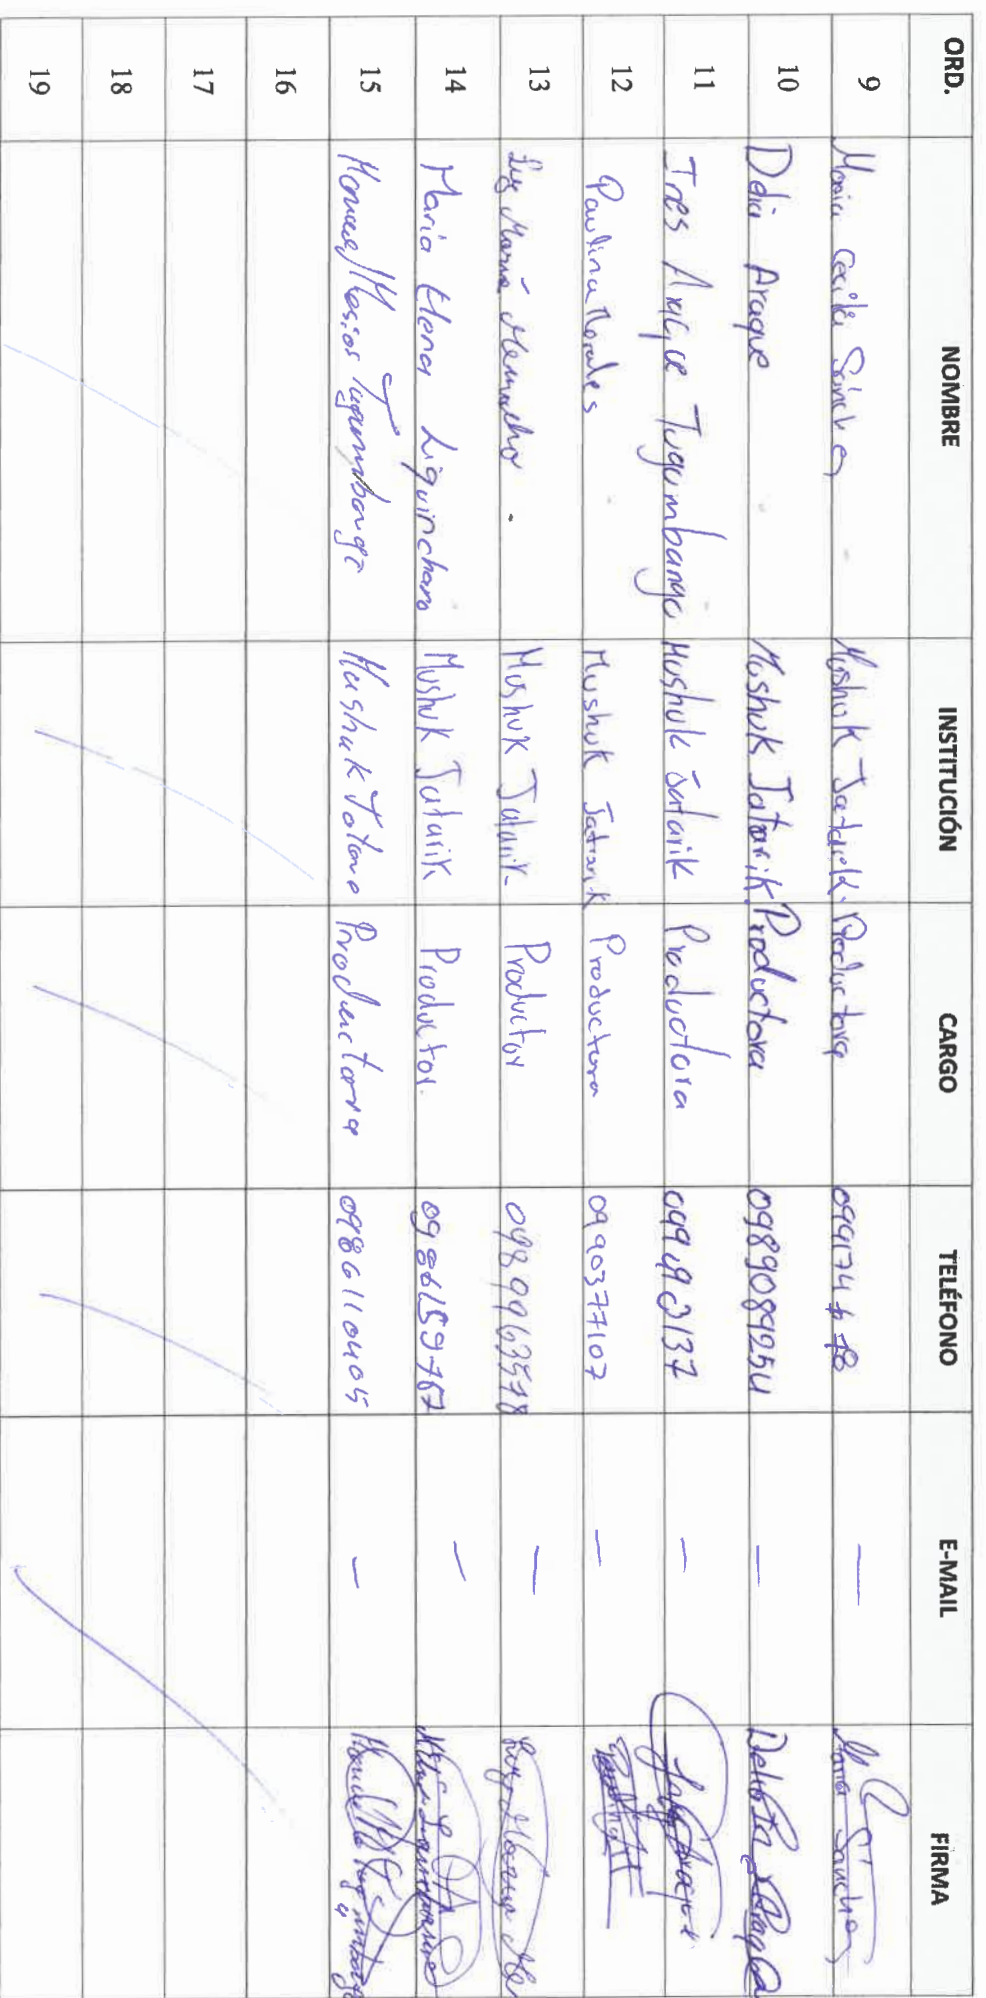 ORD. NOMBRE INSTITUCIÓN CARGO TELÉFONO E-MAIL FIRMA
9 Maria Cecilia Sánchez Mushuk Jatarik. Productora 099174 Maria Sanchez
10 Delia Araque Mushuk Jatarik. Productora 0989089254 Delia
11 Ines Araque Tugumbango Mushuk Jatarik Productora
12 Paulina Morales Mushuk Jatarik Productora 0990377107 —
13 Luz María Mushuk Jatarik Productor 0989963578 — Luz Maria
14 Maria Elena Liquinchana Mushuk Jatarik Productor. —
15 Mesias Tugumbango Mushuk Productora 0986110405 —
16
17
18
19